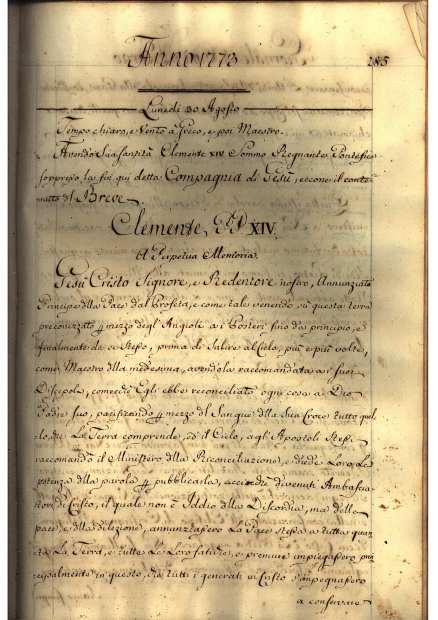 Anno 1773
285
Lunedi 30 Agosto
Tempo chiaro, e Vento à Greco, e poi Maestro.
Avendo Sua Santità Clemente XIV Sommo Regnante Pontefice
soppresso la fin qui detta Compagnia di Gesù, eccone il conte-
nuto del Breve
Clemente PP XIV.
A Perpetua Memoria.
Gesù Cristo Signore, e Redentore nostro, Annunziato
Principe dlla Pace dal Profeta, e come tale venendo su questa terra
preconizzato p mezzo degl' Angioli a i Pastori fino da principio, e
finalmente da se stesso, prima di salire al Cielo, più e più volte,
come Maestro dlla medesima, avendola raccomandata a' suoi
Discepoli, come di Egli ebbe reconciliato ogni cosa a Dio
Padre suo, pacificando p mezzo del Sangue dlla Sua Croce tutto quel-
lo che La Terra comprende, ed il Cielo, agli Apostoli stessi
raccomandò il Ministero dlla Riconciliazione, e diede Loro La
potenza dlla parola p pubblicarla, acciochè divenuti Ambascia-
tori di Cristo, il quale non è Iddio dlla Discordia, ma della
pace, e dlla dilezione, annunziassero La Pace stessa a tutta quan-
ta La Terra, e tutte Le Loro fatiche, e premure impiegassero prin-
cipalmente in questo, che tutti i generati in Cristo s'impegnassero
a conservare